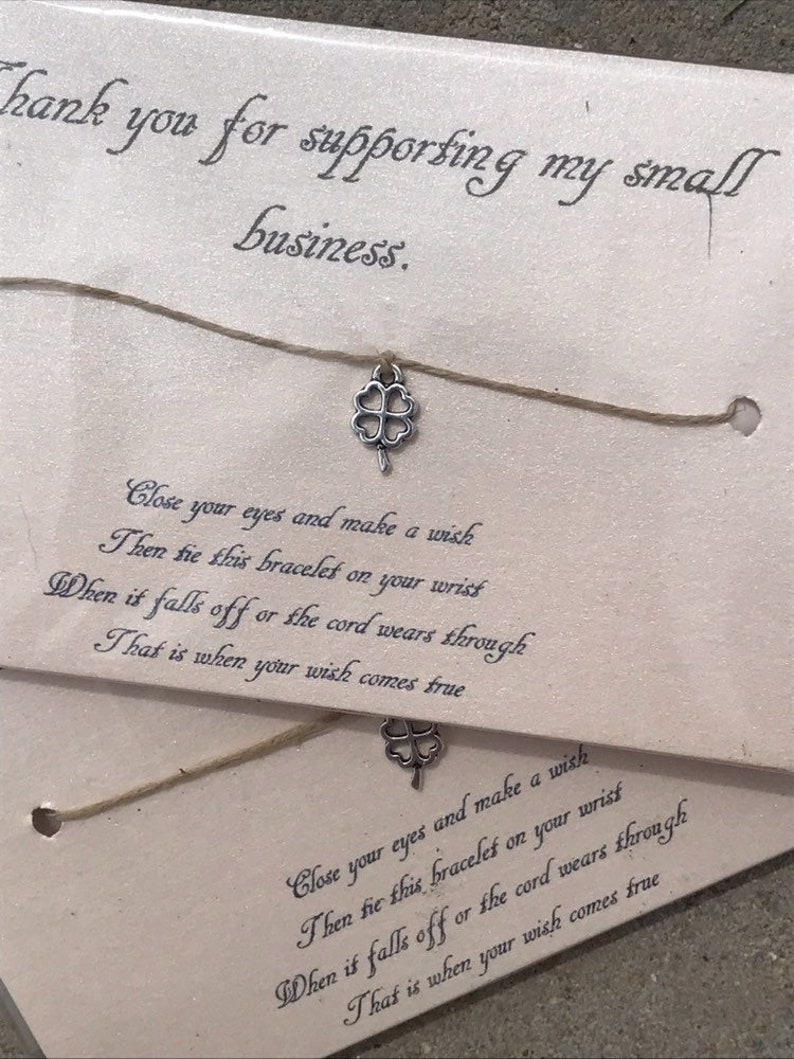 Thank you for supporting my small
business.
Close your eyes and make a wish
Then tie this bracelet on your wrist
When it falls off or the cord wears through
That is when your wish comes true
Close your eyes and make a wish
Then tie this bracelet on your wrist
When it falls off or the cord wears through
That is when your wish comes true